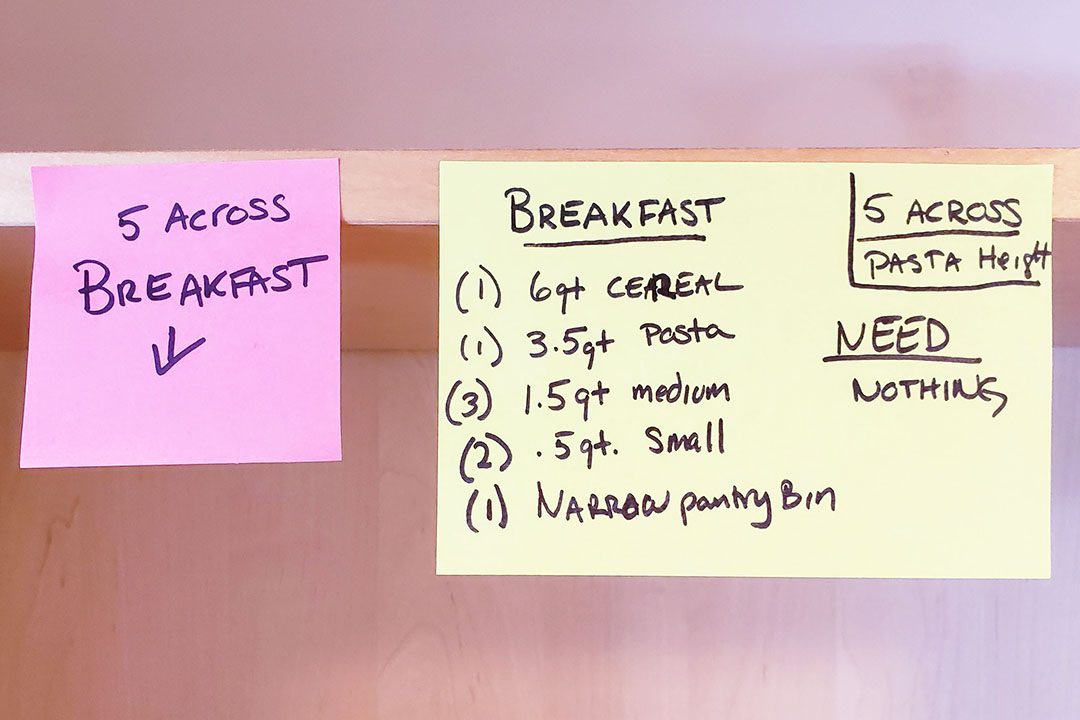 5 Across
BREAKFAST
BREAKFAST
(1) 6qt CEREAL
(1) 3.5qt Pasta
(3) 1.5qt medium
(2) .5qt. Small
(1) NARROW pantry Bin
5 ACROSS
PASTA Height
NEED
NOTHING